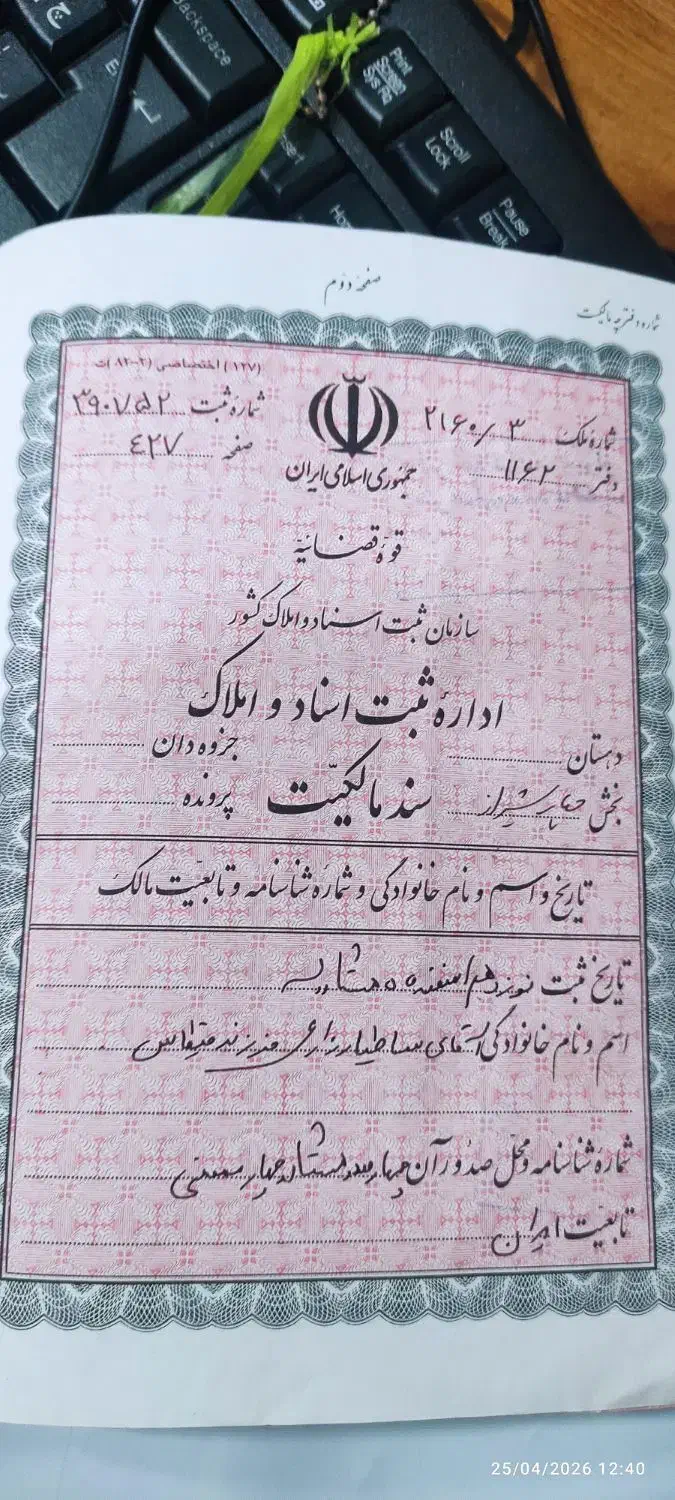 چ
Backspace
Print
Screen
Sys Rq
Scroll
Lock
Pause
Break
صفحه دوم
شماره دفترچه مالکیت
(۱۲۷) اختصاصی (۳-۸۲)ت
شماره ملک ۲۱۶۰/۳
شماره ثبت
دفتر ۱۱۶۲
صفحه ۴۲۷
جمهوری اسلامی ایران
قوهٔ قضائیه
سازمان ثبت اسناد و املاک کشور
ادارهٔ ثبت اسناد و املاک
دهستان
جزوه دان
بخش چهار شیراز
سند مالکیت
پرونده
تاریخ و اسم و نام خانوادگی و شمارهٔ شناسنامه و تابعیت مالک
تاریخ ثبت نوزدهم اسفند
اسم و نام خانوادگی آقای فرزند
شمارهٔ شناسنامه و محل صدور آن
تابعیت ایران
25/04/2026 12:40